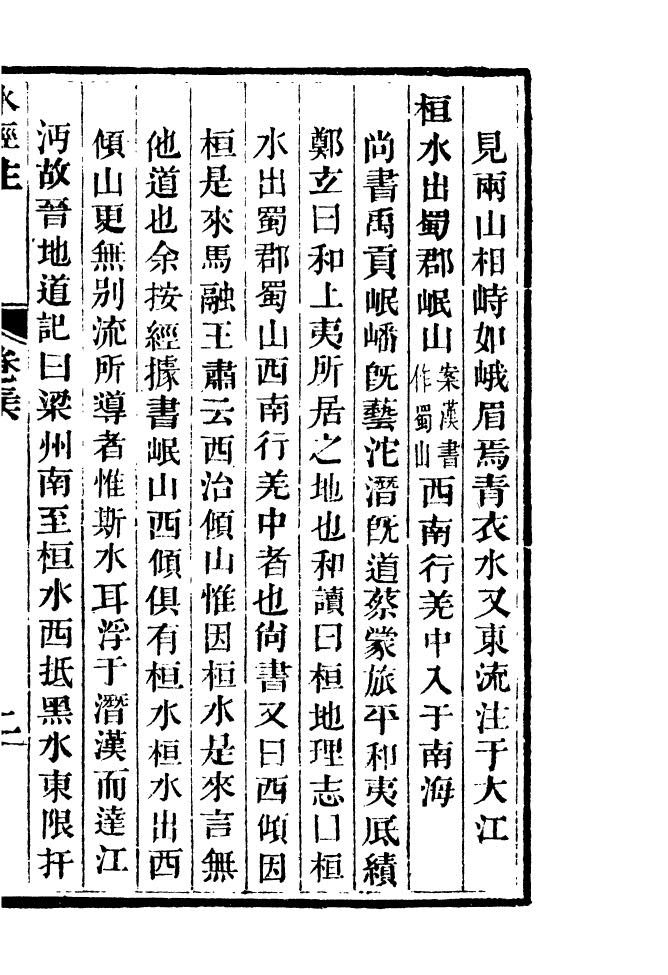 見兩山相峙如峨眉焉青衣水又東流注于大江
桓水出蜀郡岷山案漢書作蜀山西南行羌中入于南海
尚書禹貢岷嶓旣藝沱潛旣道蔡蒙旅平和夷厎績
鄭玄曰和上夷所居之地也和讀曰桓地理志曰桓
水出蜀郡蜀山西南行羌中者也尙書又曰西傾因
桓是來馬融王肅云西治傾山惟因桓水是來言無
他道也余按經據書岷山西傾俱有桓水桓水出西
傾山更無別流所導者惟斯水耳浮于潛漢而達江
沔故晉地道記曰梁州南至桓水西抵黑水東限扞
水經注
卷三十六
二